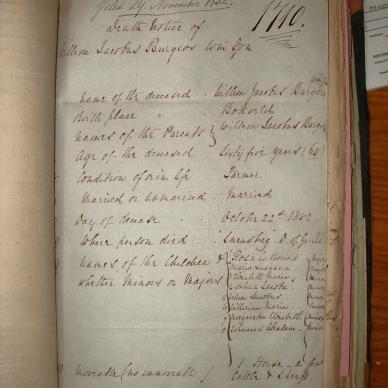 Filed 29 November 1852
1710.
Death Notice of
Willem Jacobus Burgers Wm Son
name of the deceased . Willem Jacobus Burgers
Birth place . Bokveld
names of the Parents } Willem Jacobus Burgers
Age of the deceased Sixty five years (65)
Condition of in life Farmer
Married or unmarried . Married
Day of decease October 22d 1852
Where person died . Sneuberg D. of G. Rt
names of the Children & whether Minors or Majors
Rosa Catharina major
Maria Susanna
Elizabeth Maria
Johan Jacobs
Johan Jacobus
Catharina Maria
Margaretha Elizabeth minor
Johannes Abraham minor
Moveable (no immovable) } 1 Horse - a few
Cattle & Sheep